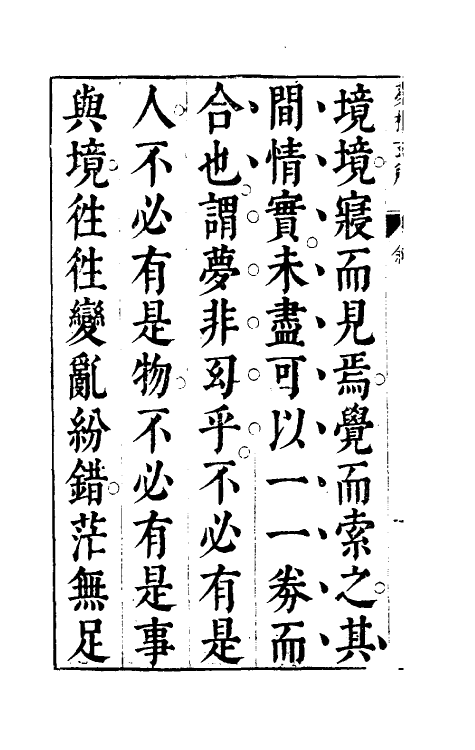 境境寢而見焉覺而索之其
間情實未盡可以一一券而
合也謂夢非幻乎不必有是
人不必有是物不必有是事
與境徃徃變亂紛錯茫無足